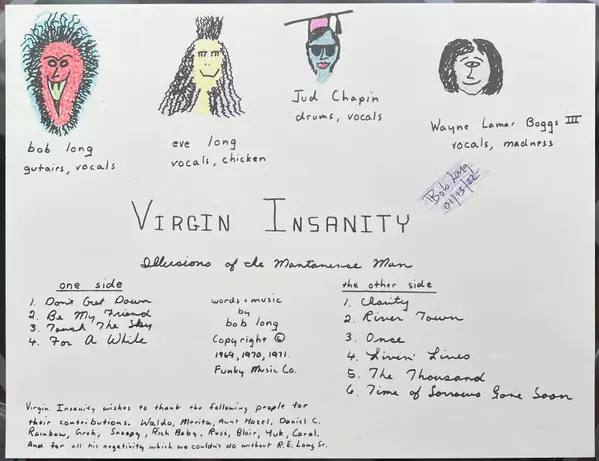 bob long
gutairs, vocals
eve long
vocals, chicken
Jud Chapin
drums, vocals
Wayne Lamar Boggs III
vocals, madness
Bob Long
01/15/22
VIRGIN INSANITY
Illusions of the Mantanense Man
one side
1. Don't Get Down
2. Be My Friend
3. Touch The Sky
4. For A While
words + music
by
bob long
Copyright ©
1969, 1970, 1971.
Funky Music Co.
the other side
1. Charity
2. River Town
3. Once
4. Livin' Lives
5. The Thousand
6. Time of Sorrows Gone Soon
Virgin Insanity wishes to thank the following people for
their contributions. Waldo, Merita, Aunt Hazel, Daniel C.
Rainbow, Groh, Snoopy, Rich Baby, Russ, Blair, Yuk, Carol.
And for all his negativity which we couldn't do without R.E. Long Sr.